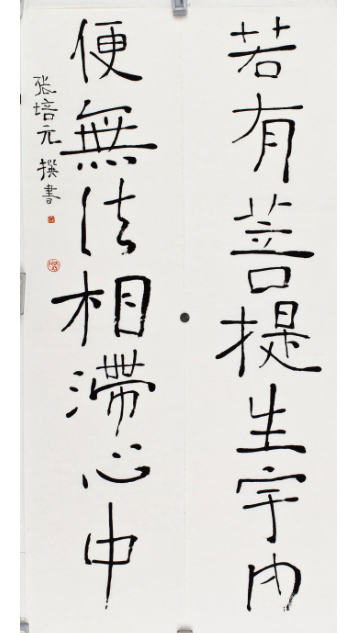 若有菩提生宇内
便無法相滯心中
張培元撰書